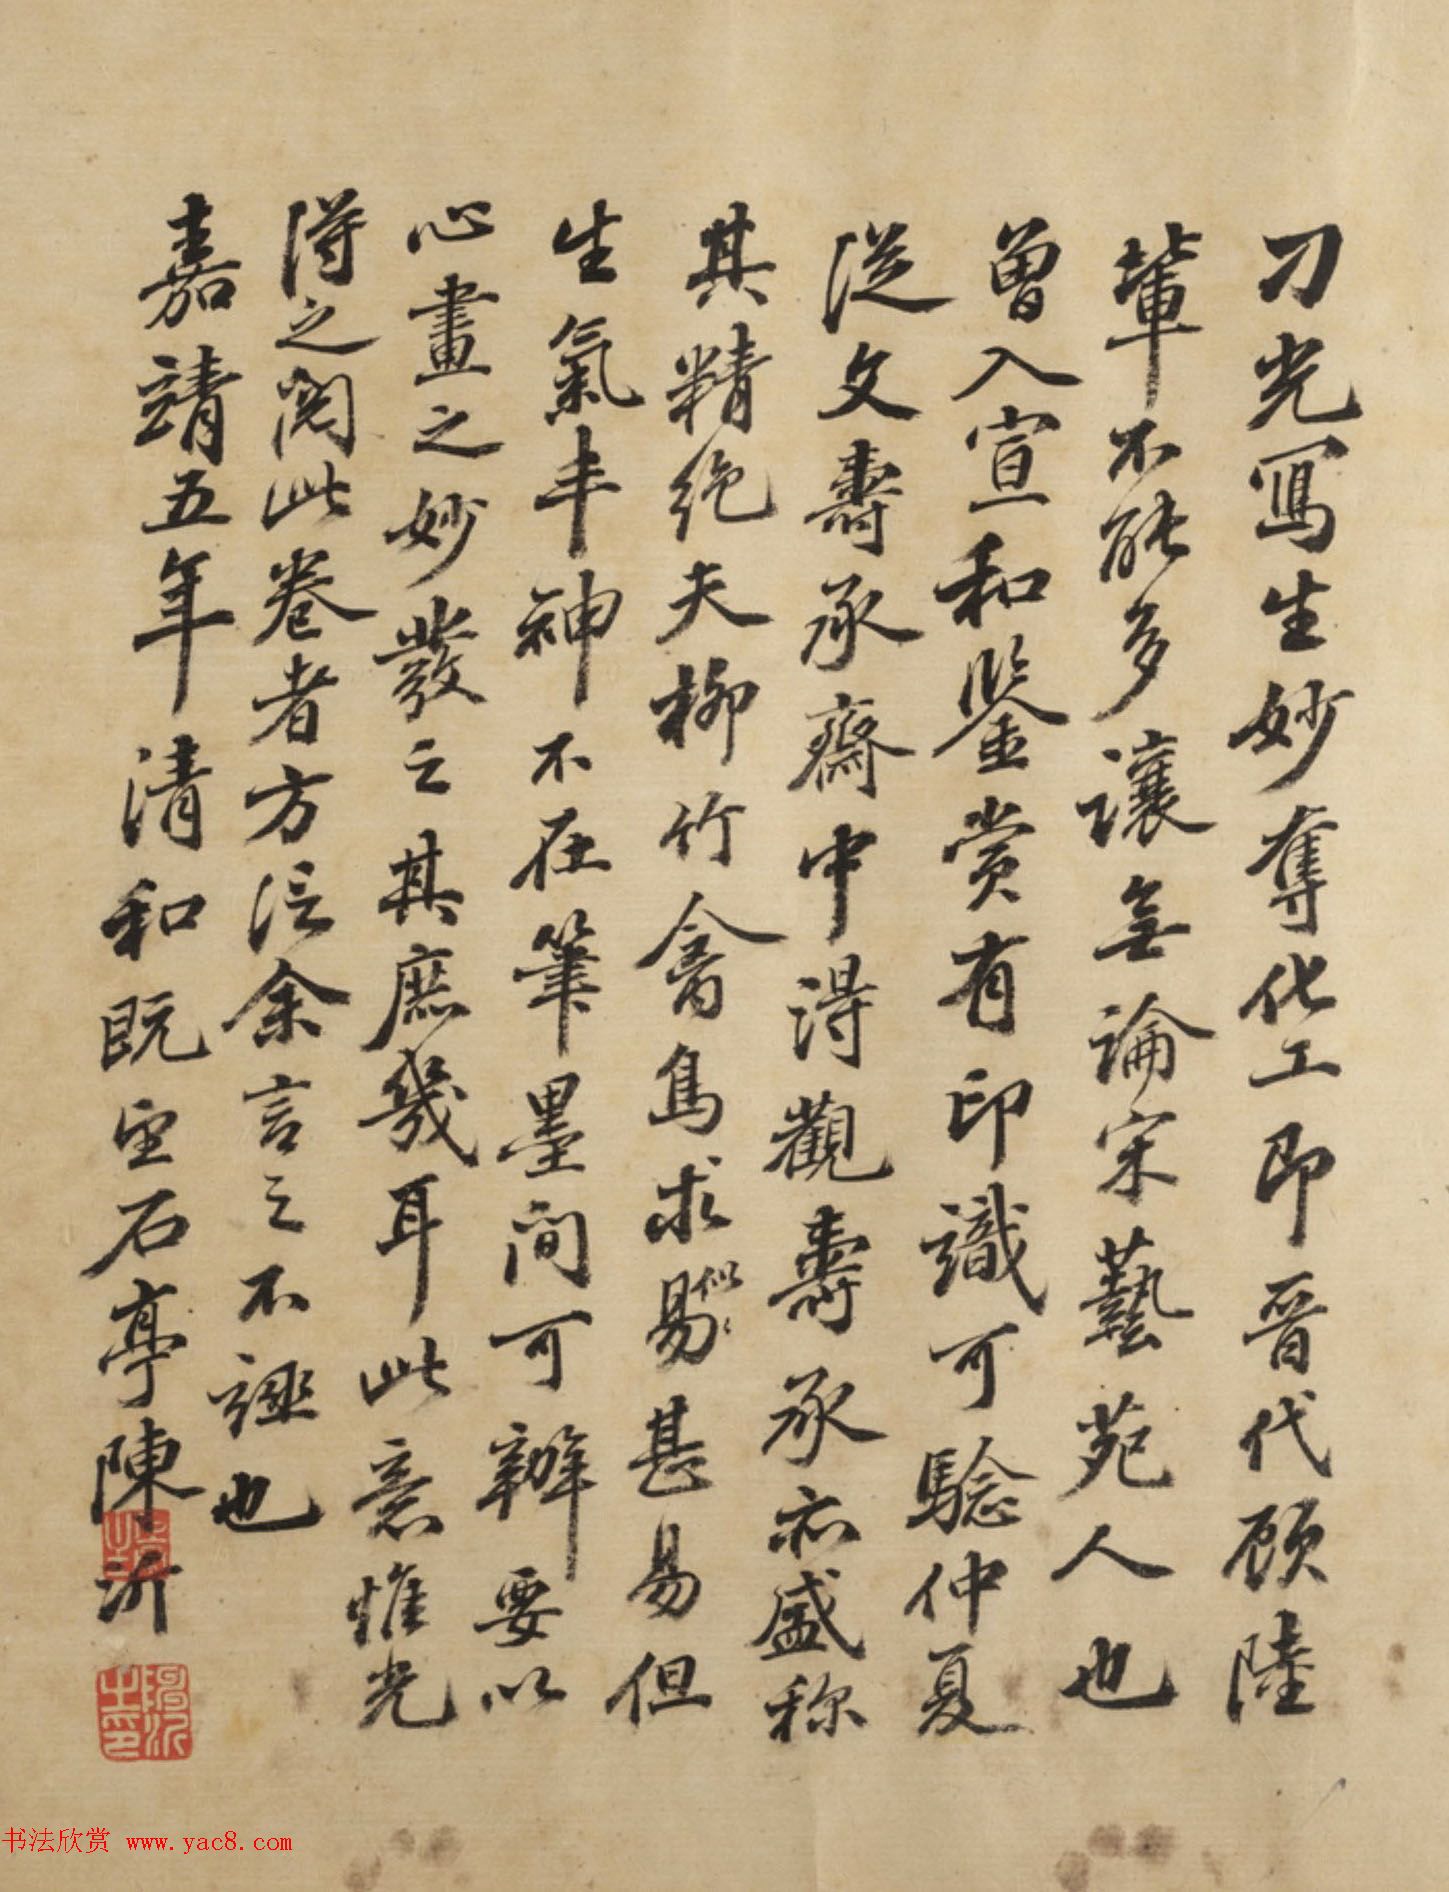 刀光寫生妙奪化工即晉代顧陸
輩不能多讓無論宋藝苑人也
曾入宣和鑒賞有印識可驗仲夏
從文壽承齋中得觀壽承亦盛称
其精絕夫柳竹禽鳥求似易甚易但
生氣丰神不在筆墨間可辦要以
心畫之妙發之其庶幾耳此意惟光
得之閱此卷者方信余言之不誣也
嘉靖五年清和既望石亭陳沂
书法欣赏 www.yac8.com